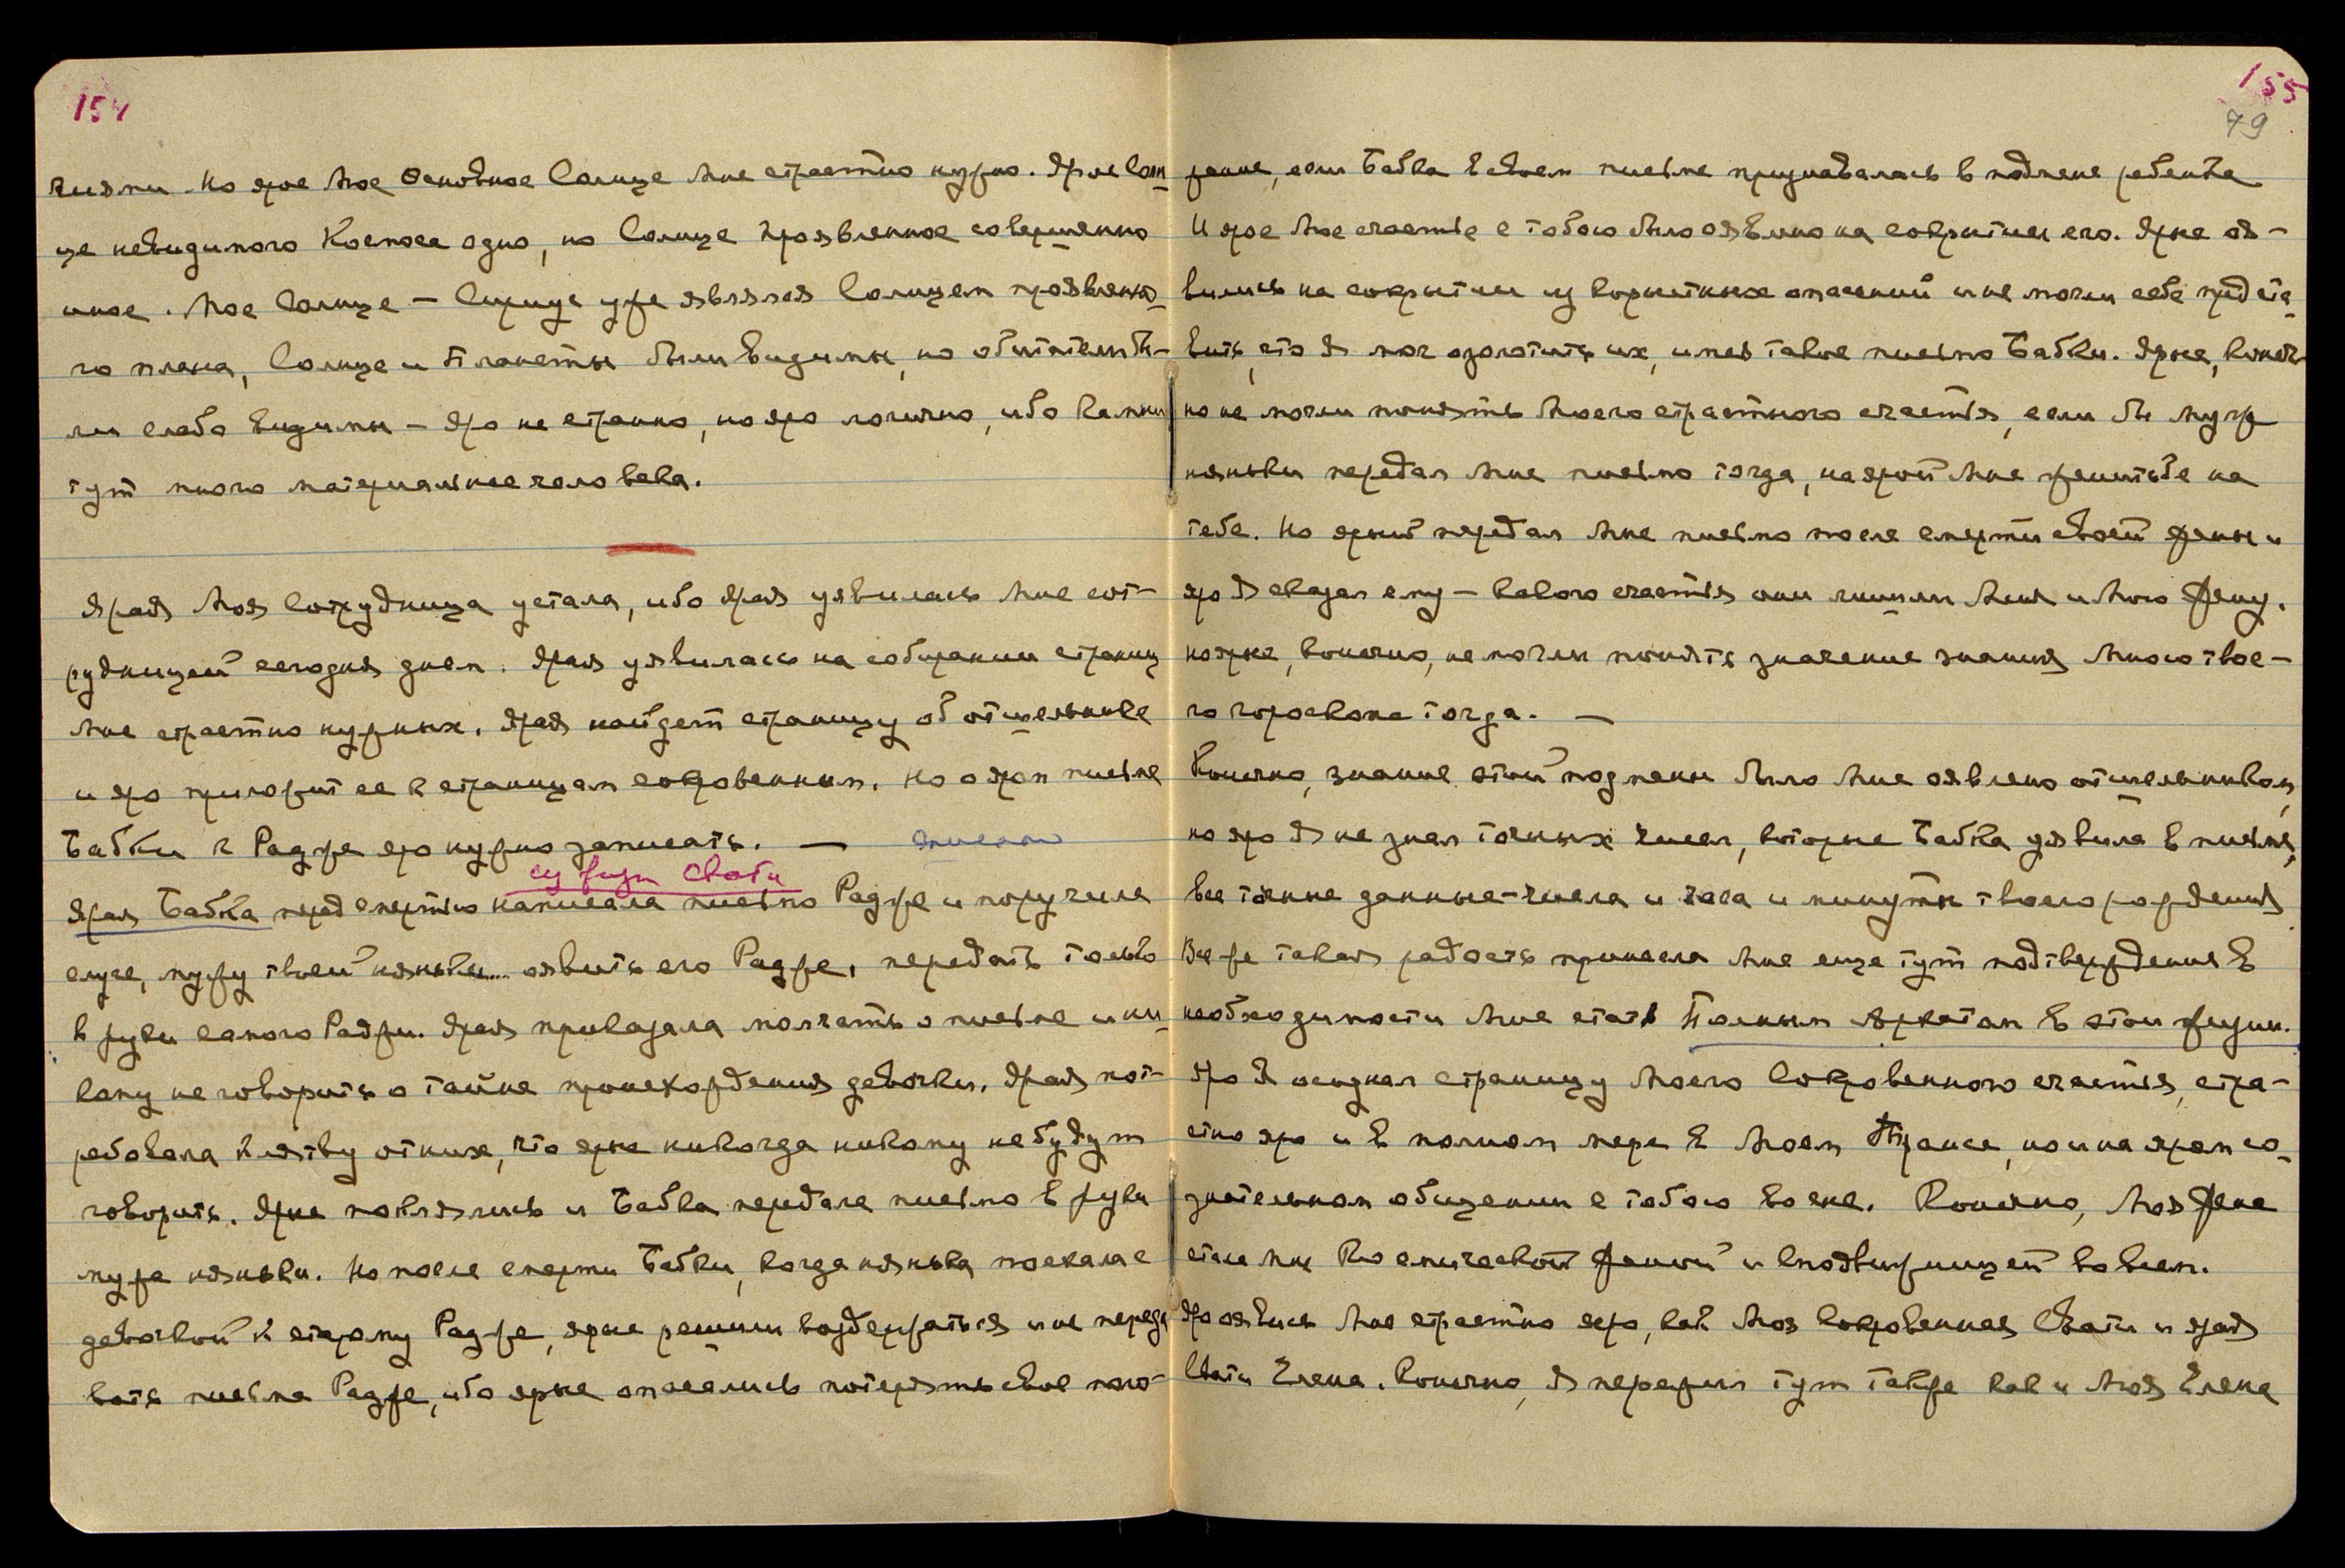 154
чизми. Но ярое Мое Основное Солнце Мне страстно нужно. Ярое Солн-
це невидимого Космоса одно, но Солнце проявленное совершенно
иное. Мое Солнце – Сириус уже являлся Солнцем проявленно-
го плана, Солнце и Планеты были видимы, но обитатели бы-
ли слабо видимы – яро не странно, но яро логично, ибо Камни
тут много материальнее человека.
Ярая Моя Сотрудница устала, ибо Ярая уявилась Мне сот-
рудницей сегодня днем. Ярая уявилась на собирании страниц
Мне страстно нужных. Ярая найдет страницу об отшельнике
и яро приложит ее к страницам сокровенным. Но о яром письме
Бабки к Радже яро нужно записать. —
из жизн Свати
Ярая Бабка перед смертью написала письмо Радже и поручила
слуге, мужу твоей няньки... оявить его Радже, передать только
в руки самого Раджи. Ярая приказала молчать о письме и ни-
кому не говорить о тайне происхождения девочки. Ярая пот-
ребовала клятву от них, что ярые никогда никому не будут
говорить. Ярые поклялись и Бабка передала письмо в руки
мужа няньки. Но после смерти Бабки, когда нянька поехала с
девочкой к старому Радже, ярые решили воздержаться и не переда-
вать письма Радже, ибо ярые опасались потерять свое поло-
155
79
жение, если Бабка в своем письме признавалась в подмене ребенка
И ярое Мое счастье с тобою было оявлено на сокрытии его. Ярые оя-
вились на сокрытии из корыстных опасений и не могли себе предста-
вить, что Я мог озолотить их, имея такое письмо Бабки. Ярые, конеч-
но не могли понять Моего страстного счастья, если бы муж
няньки передал Мне письмо тогда, на ярой Мне женитьбе на
тебе. Но ярый передал Мне письмо после смерти своей жены и
яро Я сказал ему – какого счастья они лишили Меня и Мою Жену.
но ярые, конечно, не могли понять значение знания Мною твое-
го гороскопа тогда. —
Конечно, знание этой подмены было Мне оявлено отшельником,
но яро Я не знал точных чисел, которые Бабка уявила в письме,
все точные данные-числа и часа и минуты твоего рождения
Все же такая радость принесла Мне еще тут подтверждения в
необходимости Мне стать Полным Архатом в этой жизни.
Яро Я осознал страницу Моего Сокровенного счастья, стра-
стно яро и в полном мере в Моем Трансе, но и на яром со-
знательном общении с тобою во сне. Конечно, Моя Жена
стала Мне Космической Женой и сподвижницей во всем.
Яро оявись Мне страстно яро, как Моя Сокровенная Свати и ярая
Свати Елена. Конечно, Я пережил тут также как и Моя Елена